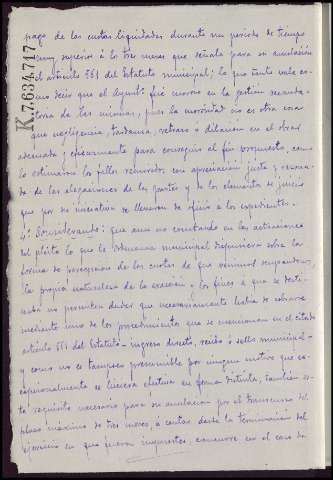 K.7.634.717
pago de las cuotas liquidadas durante un periodo de tiempo
muy superior á lo tres meses que señala para su anulación
el artículo 561 del Estatuto municipal; lo que tanto vale co-
mo decir que el Ayuntº fué moroso en la gestión recauda-
toria de las mismas, pues la morosidad no es otra cosa
que negligencia, tardanza, retraso o dilación en el obrar
adecuada y eficazmente para conseguir el fin propuesto, como
lo estimaron los fallos recurridos con apreciación justa y razona-
da de las alegaciones de las partes y de los elementos de juicio
que por su iniciativa se llevaron de oficio a los expedientes.
4º Considerando: que aun no constando en las actuaciones
del pleito lo que la Ordenanza municipal dispusiera sobre la
forma de percepción de las cuotas de que vinimos ocupándonos,
la propia naturaleza de la exacción y los fines á que se desti-
naba no permiten dudar que necesariamente había de cobrarse
mediante uno de los procedimientos que se mencionan en el citado
artículo 561 del Estatuto - ingreso directo, recibo ó sellos municipales -
y como no es tampoco presumible por ningún motivo que ex-
cepcionalmente se hiciera efectiva en forma distinta, también es-
te requisito necesario para su anulación por el transcurso del
plazo máximo de tres meses, a contar desde la terminación del
ejercicio en que fueran impuestas, concurre en el caso de